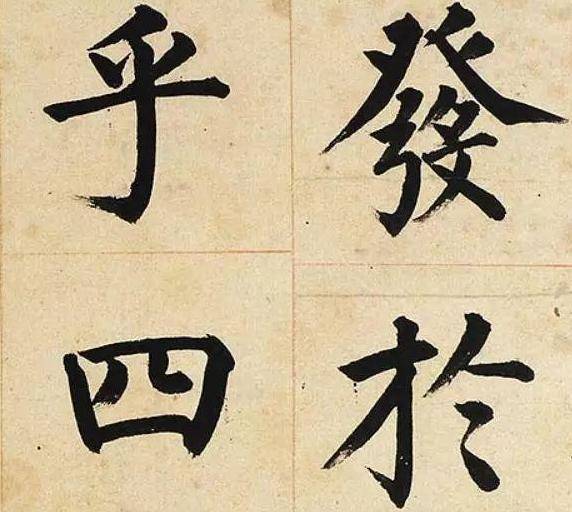 發於
乎四